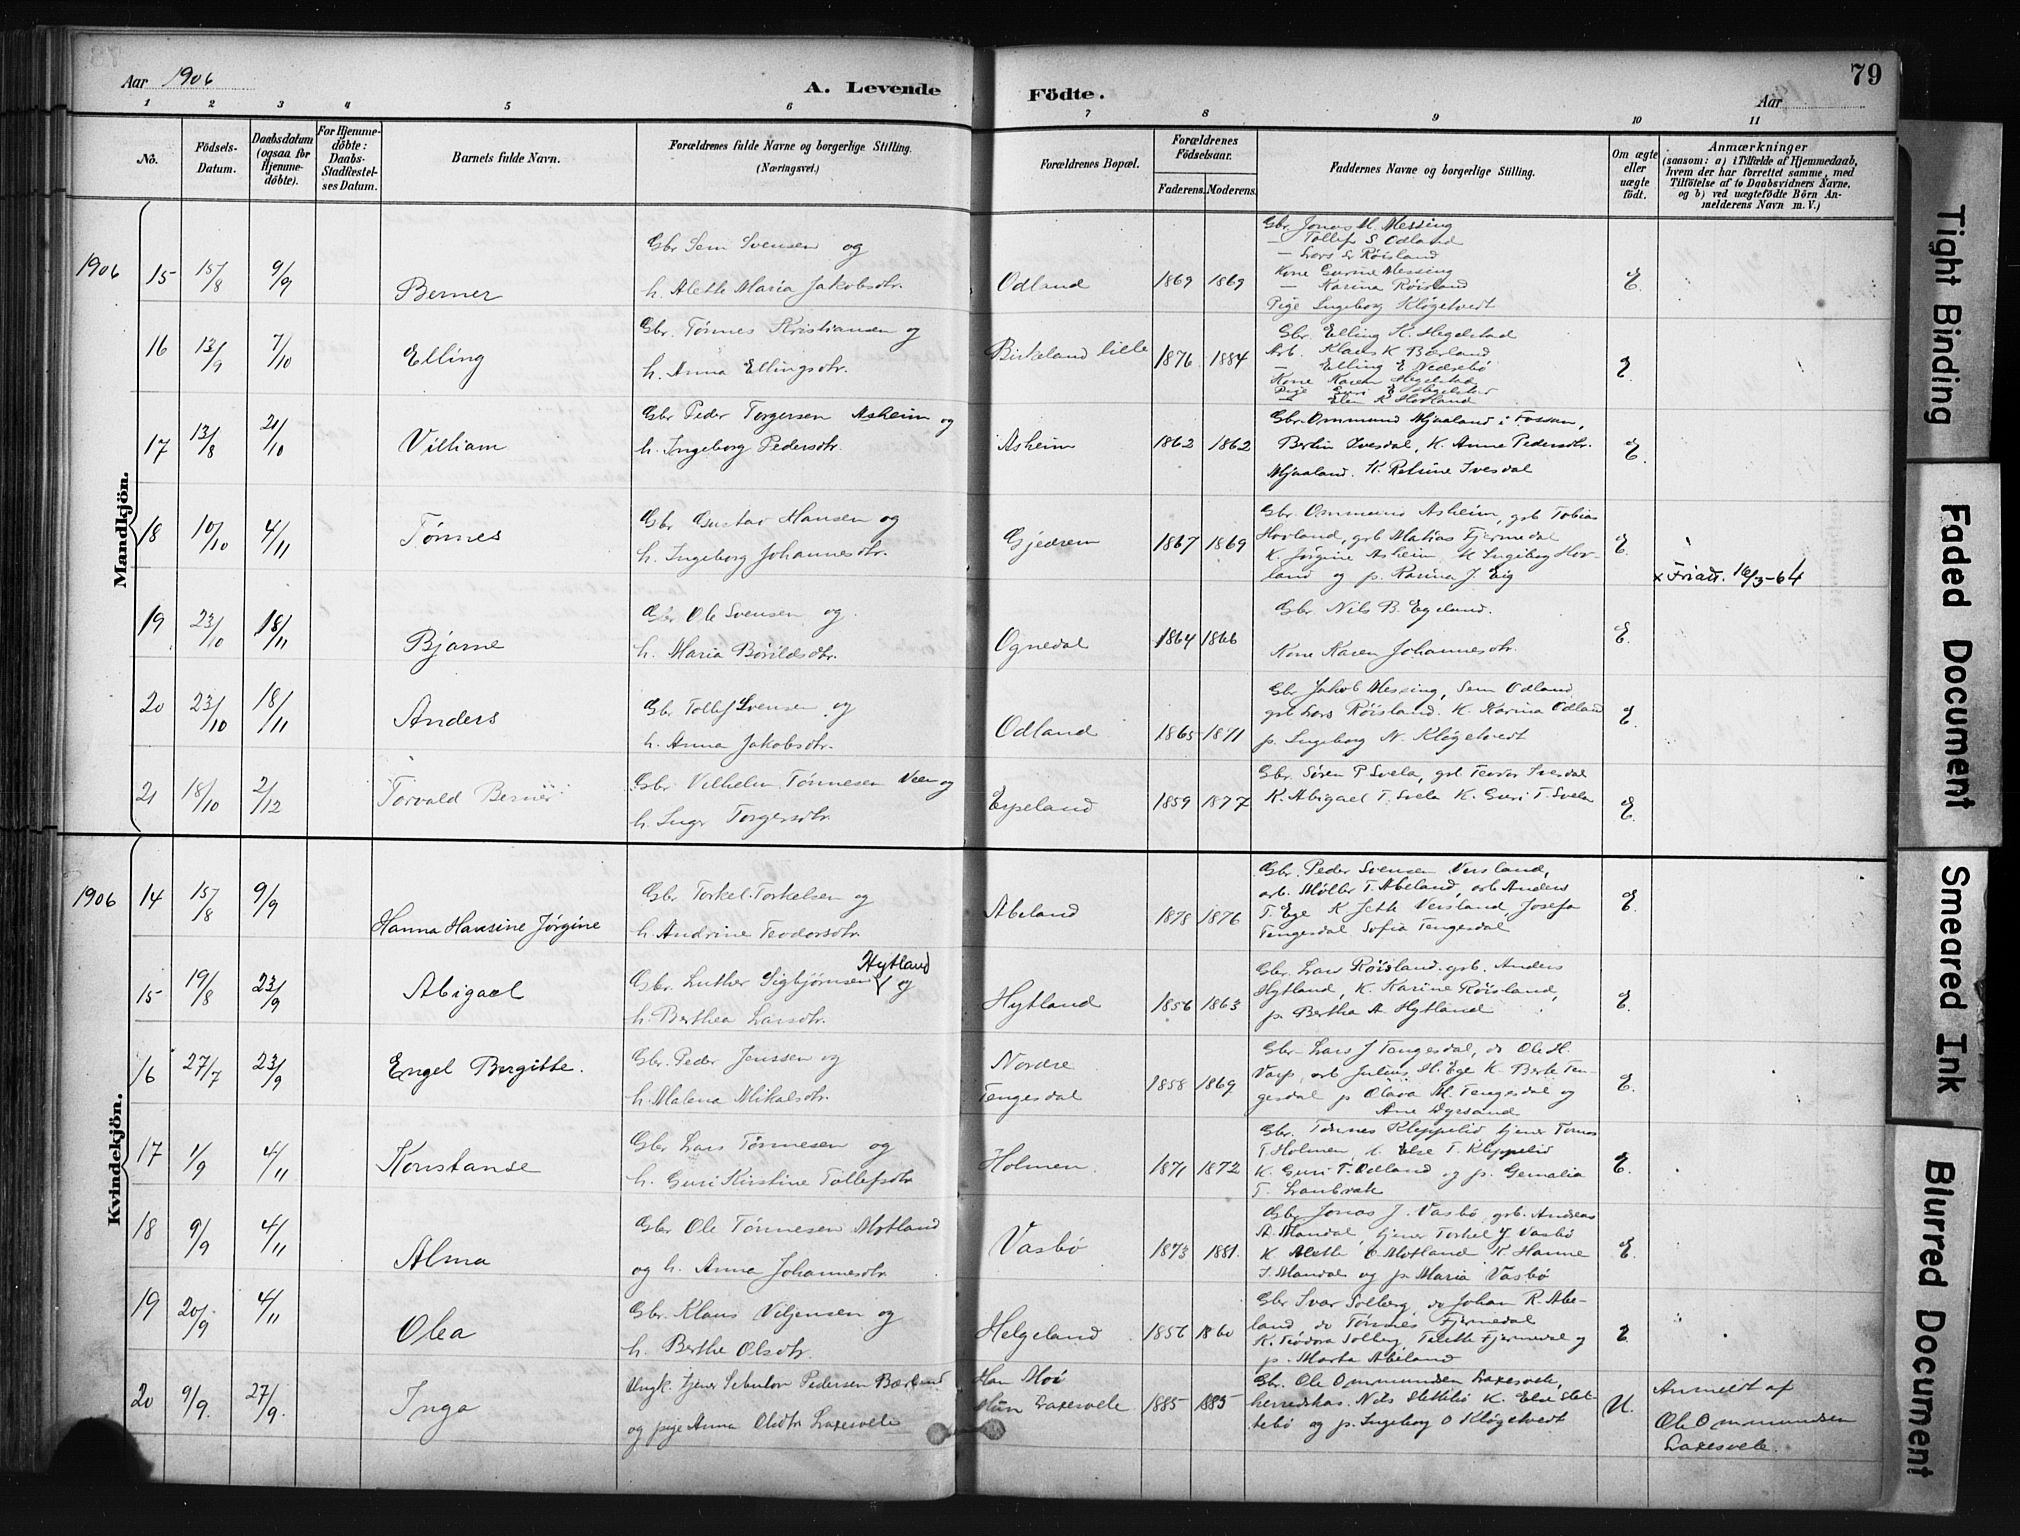 79
Aar 1906
A. Levende
Födte.
Aar
1 2 3 4 5 6 7 8 9 10 11
No.
Födsels-Datum.
Daabsdatum (ogsaa for Hjemmedöbte).
For Hjemmedöbte: Daabs-Stadfestelses Datum.
Barnets fulde Navn.
Forældrenes fulde Navne og borgerlige Stilling. (Næringsvei.)
Forældrenes Bopæl.
Forældrenes Födselsaar.
Faderens. Moderens.
Faddernes Navne og borgerlige Stilling.
Om ægte eller uægte födt.
Anmærkninger
(saasom: a) i Tilfælde af Hjemmedaab,
hvem der har forrettet samme, med
Tilföielse af to Daabsvidners Navne,
og b) ved uægtefödte Börn An-
melderens Navn m. V.)
Mandkjön.
1906 15 15/8 9/9 Berner
Gbr Sem Svensen og
h. Alette Maria Jakobsdtr.
Odland 1869 1869
Gbr Jonas M. Messing
— Tollef S Odland
— Lars L Röisland
Kone Gurine Messing
— Karina Röisland
Pige Ingeborg Klögetvedt
E.
16 13/9 7/10 Elling
Gbr. Tönnes Kristiansen og
h. Anna Ellingsdtr.
Birkeland lille 1876 1884
Gbr. Elling K. Hegelstad
Arb. Klaus K Bærland
— Elling E Nedrebö
Kone Karen Hegelstad
Pige E Hegelstad
— Elen K Hovland
E.
17 13/8 21/10 Villiam
Gbr Peder Torgersen Asheim og
h. Ingeborg Pedersdtr.
Asheim 1862 1862
Gbr. Ommund Mjaaland i Fossan,
Bertin Ivesdal, K. Anne Pedersdtr.
Mjaaland. K. Retrine Ivesdal
E.
18 10/10 4/11 Tönnes
Gbr Gustav Hansen og
h. Ingeborg Johannesdtr.
Gjedrem 1867 1869
Gbr. Ommund Asheim, gbr Tobias
Hovland, gbr Matias Fjermedal
K. Jörgine Asheim, K Ingeborg Hov-
land og p. Karina J. Eig
E.
x Friatt. 16/3-64
19 23/10 18/11 Bjarne
Gbr Ole Svensen og
h. Maria Börildsdtr.
Ognedal 1864 1866
Gbr. Nils B. Egeland.
Kone Karen Johannesdtr.
E.
20 23/10 18/11 Anders
Gbr Tollef Svensen og
h. Anna Jakobsdtr.
Odland 1865 1871
Gbr Jakob Messing, Sem Odland
gbr Lars Röisland. K. Karina Odland
p. Ingeborg N. Klögetvedt
E.
21 18/10 2/12 Torvald Berner
Gbr Vilhelm Tönnesen Veen og
h. Inger Torgersdtr.
Espeland 1859 1877
Gbr. Sören P Svela, gbr Teodor Ivesdal
K. Abigael T. Svela K. Guri T. Svela
E.
Kvindekjön.
1906 14 15/8 9/9 Hanna Hansine Jörgine
Gbr Torkel Torkelsen og
h Andrine Teodorsdtr.
Abeland 1878 1876
Gbr. Peder Svensen Versland,
arb. Möller T. Abeland, arb Anders
T. Ege K Jette Versland, Josefa
Tengesdal Sofia Tengesdal
E.
15 19/8 23/9 Abigael
Hytland
Gbr. Luther Sigbjörnsen og
h. Berthea Larsdtr.
Hytland 1856 1863
Gbr. Lars Röisland. gbr. Anders
Hytland, K. Karine Röisland,
p. Bertha A Hytland
E.
16 27/7 23/9 Engel Bergitte.
Gbr. Peder Jenssen og
h. Malena Mikalsdtr.
Nordre
Tengesdal 1858 1869
Gbr. Lars J Tengesdal, do Ole H.
Varp, arb Julius H. Ege K. Berte Ten-
gesdal p Olava M. Tengesdal og
Ane Dyrsand
E.
17 1/9 4/11 Konstanse
Gbr Lars Tönnesen og
h. Guri Kirstine Tollefsdtr
Holmen. 1871 1872
Gbr. Tönnes Kleppelid, tjener Tomas
T. Holmen, K. Else T. Kleppelid
K. Guri T. Odland og p. Gemalia
T. Lanbrak
E.
18 9/9 4/11 Alma
Gbr Ole Tönnesen Motland
og h. Anna Johannesdtr.
Vasbö 1873 1881.
Gbr Jonas J. Vasbö gbr. Andreas
A. Mandal, tjener Torkel J Vasbö
K Alette O Motland K Hanne
S. Mandal og p. Maria Vasbö
E.
19 20/9 4/11 Olea
Gbr. Klaus Viljensen og
h. Berthe Olsdtr.
Helgeland 1856 1860
Gbr Svar Solberg, do Johan R. Abe-
land do Tönnes Fjermedal
K. Teodora Solberg, Tolette Fjermedal og
p. Marta Abeland
E.
20 9/9. 27/9. Inga
Ungk. tjener Sebulon Pedersen Bærland
og pige Anna Olsdtr Laxesvele
Han Moi
Hun Laxesvele 1885 1885
Gbr. Ole Ommundsen Laxesvele,
herredskas. Nils Slettebö K. Else Slet-
tebö og p. Ingeborg O Klögetvedt
U.
Anmeldt af
Ole Ommundsen
Laxesvele.
Tight Binding
Faded Document
Smeared Ink
Blurred Document